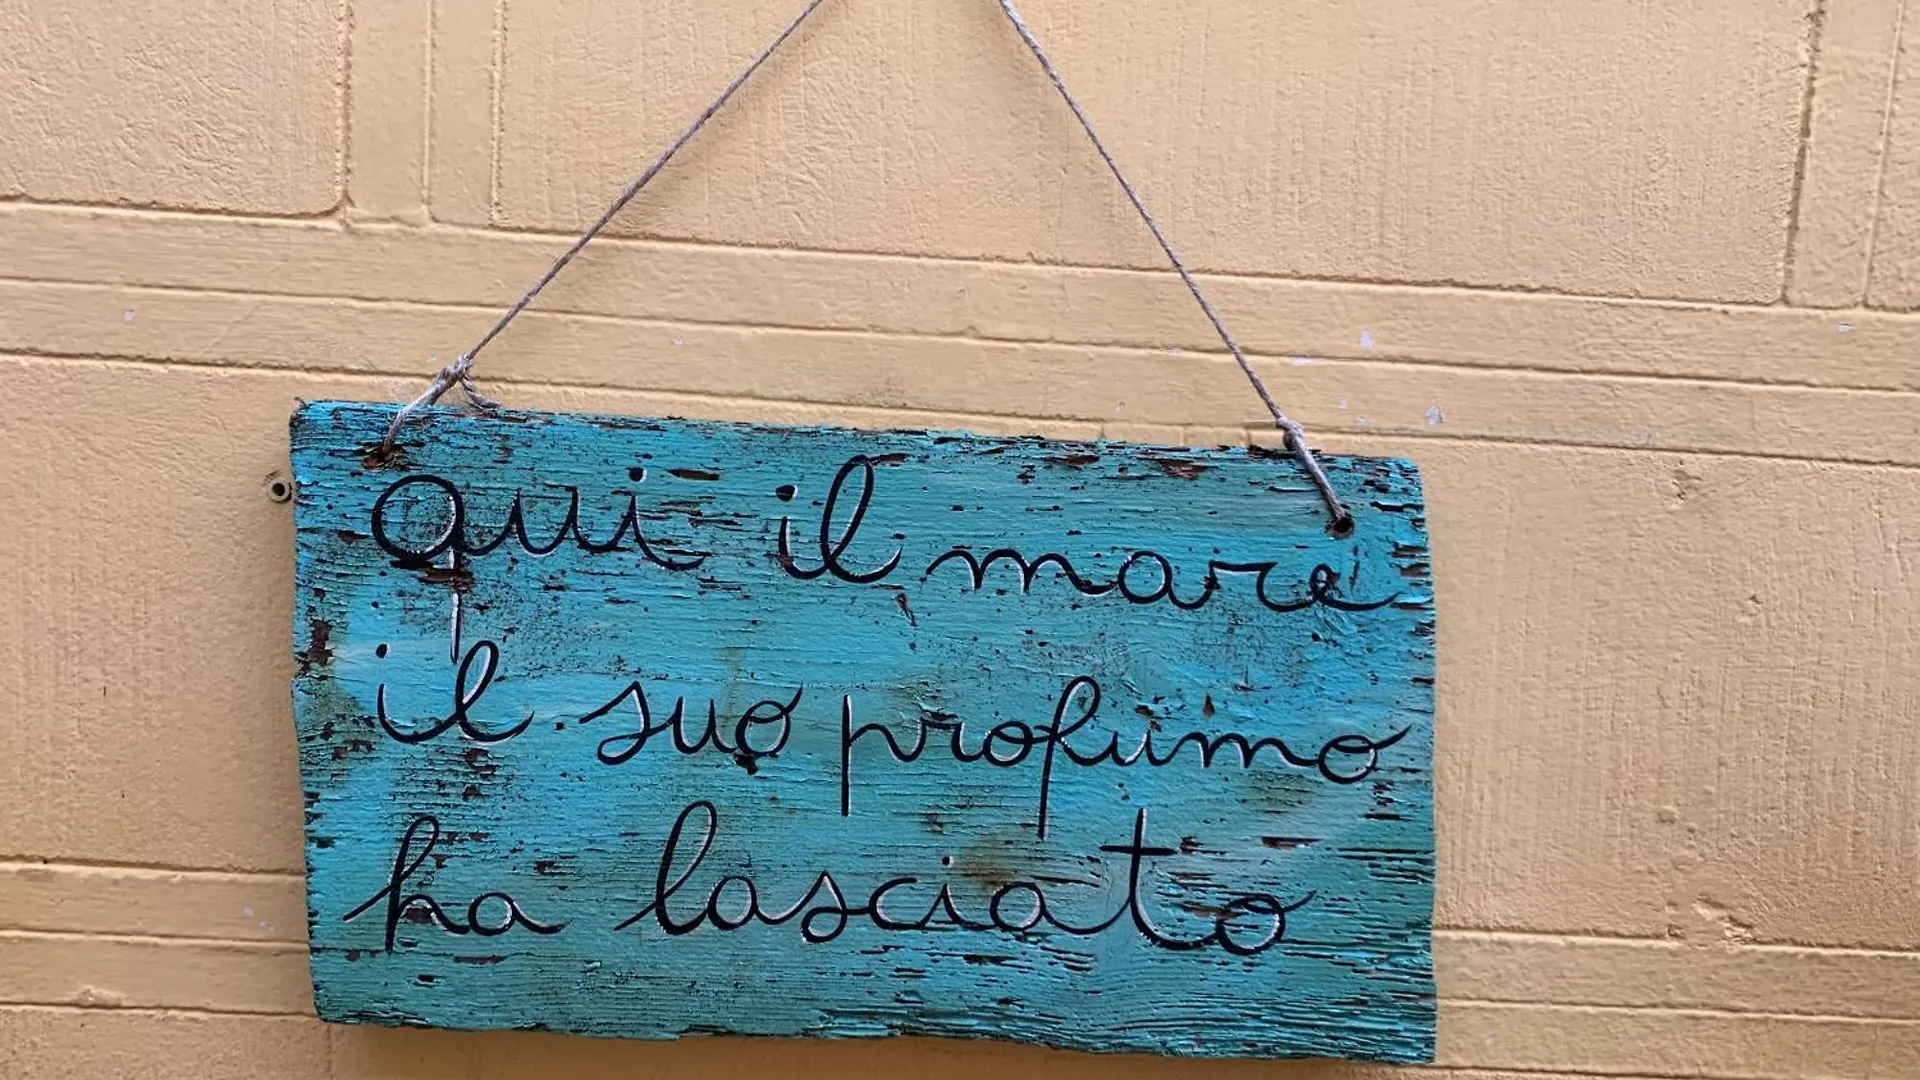 qui il mare
il suo profumo
ha lasciato